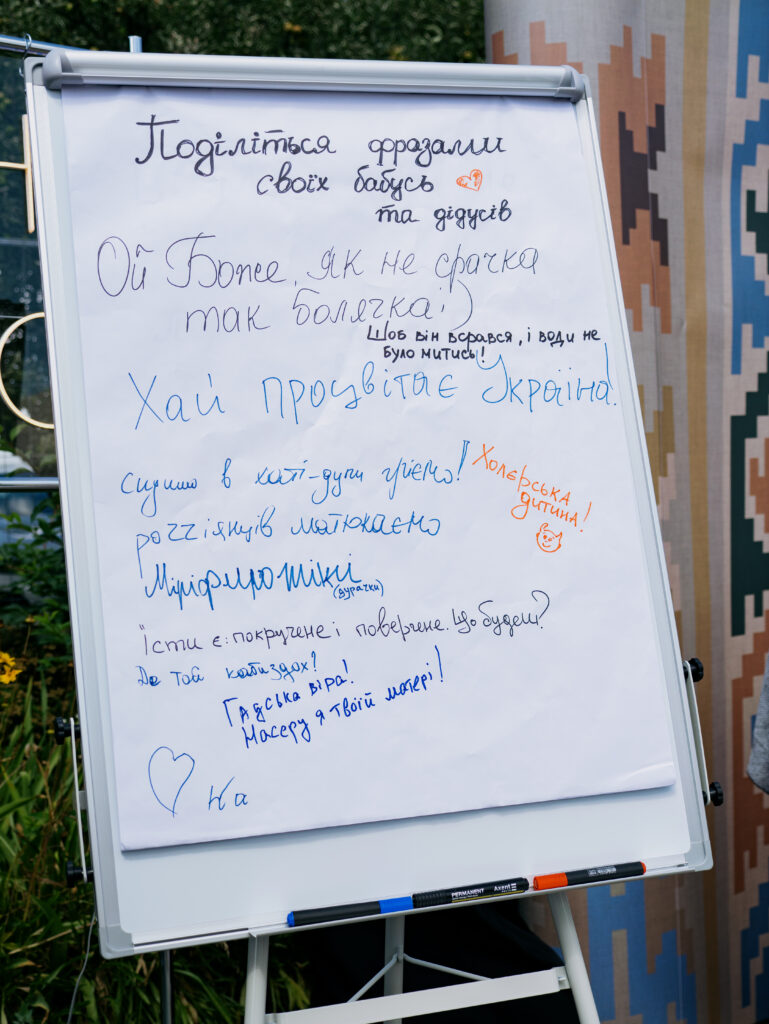 Поділіться фразами
своїх бабусь
та дідусів
Ой Боже, як не срачка
так болячка :)
Щоб він всрався, і води не
було митись!
Хай процвітає Україна!
Сидимо в хаті - дупи гріємо!
Холєрська
дитина!
роççіянців матюкаємо
(бурачки)
"Їсти є: покручене і поверчене. Що будеш?
Де той катиздох?
Гадська віра!
Насеру я твоїй матері!
На
PERMANENT Axent